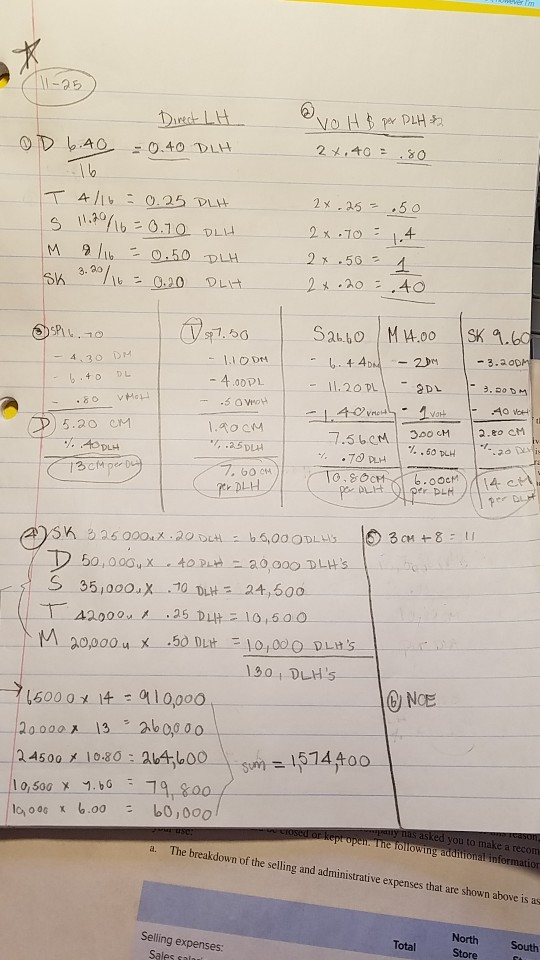 11-25
Direct LH
② VOH $ per DLH $2
① D 6.40/16 = 0.40 DLH
2 x .40 = .80
T 4/16 = 0.25 DLH
2 x .25 = .50
S 11.20/16 = 0.70 DLH
2 x .70 = 1.4
M 8/16 = 0.50 DLH
2 x .50 = 1
SK 3.20/16 = 0.20 DLH
2 x .20 = .40
③ SP16.70
- 4.30 DM
- 6.40 DL
- .80 VMOH
D 5.20 CM
% .40DLH
13 CM per DLH
T SP7.50
- 1.10 DM
- 4.00 DL
- .50 VMOH
1.90 CM
% .25DLH
7.60 CM
per DLH
S26.60
- 6.44DM
- 11.20 DL
- 1.40 VMOH
7.56 CM
% .70 DLH
10.80CM
per DLH
M 14.00
- 2DM
- 8DL
- 1 VOH
300 CM
% .50 DLH
6.00CM
per DLH
SK 9.60
- 3.20DM
- 3.20 DM
- .40 VOH
2.80 CM
% .20 DLH
14 CM
per DLH
④ SK 325000u x .20 DLH = 65,000DLH's
D 50,000u x .40 DLH = 20,000 DLH's
S 35,000u x .70 DLH = 24,500
T 42000u x .25 DLH = 10,500
M 20,000u x .50 DLH = 10,000 DLH's
130, DLH's
65000 x 14 = 910,000
20000 x 13 = 260,000
24500 x 10.80 = 264,600
10,500 x 7.60 = 79,800
10,000 x 6.00 = 60,000
sum = 1,574,400
⑤ 3 CM + 8 = 11
⑥ NOE
closed or kept open. The following additional information
has asked you to make a recom
a. The breakdown of the selling and administrative expenses that are shown above is as
Total
North
Store
South
Selling expenses: